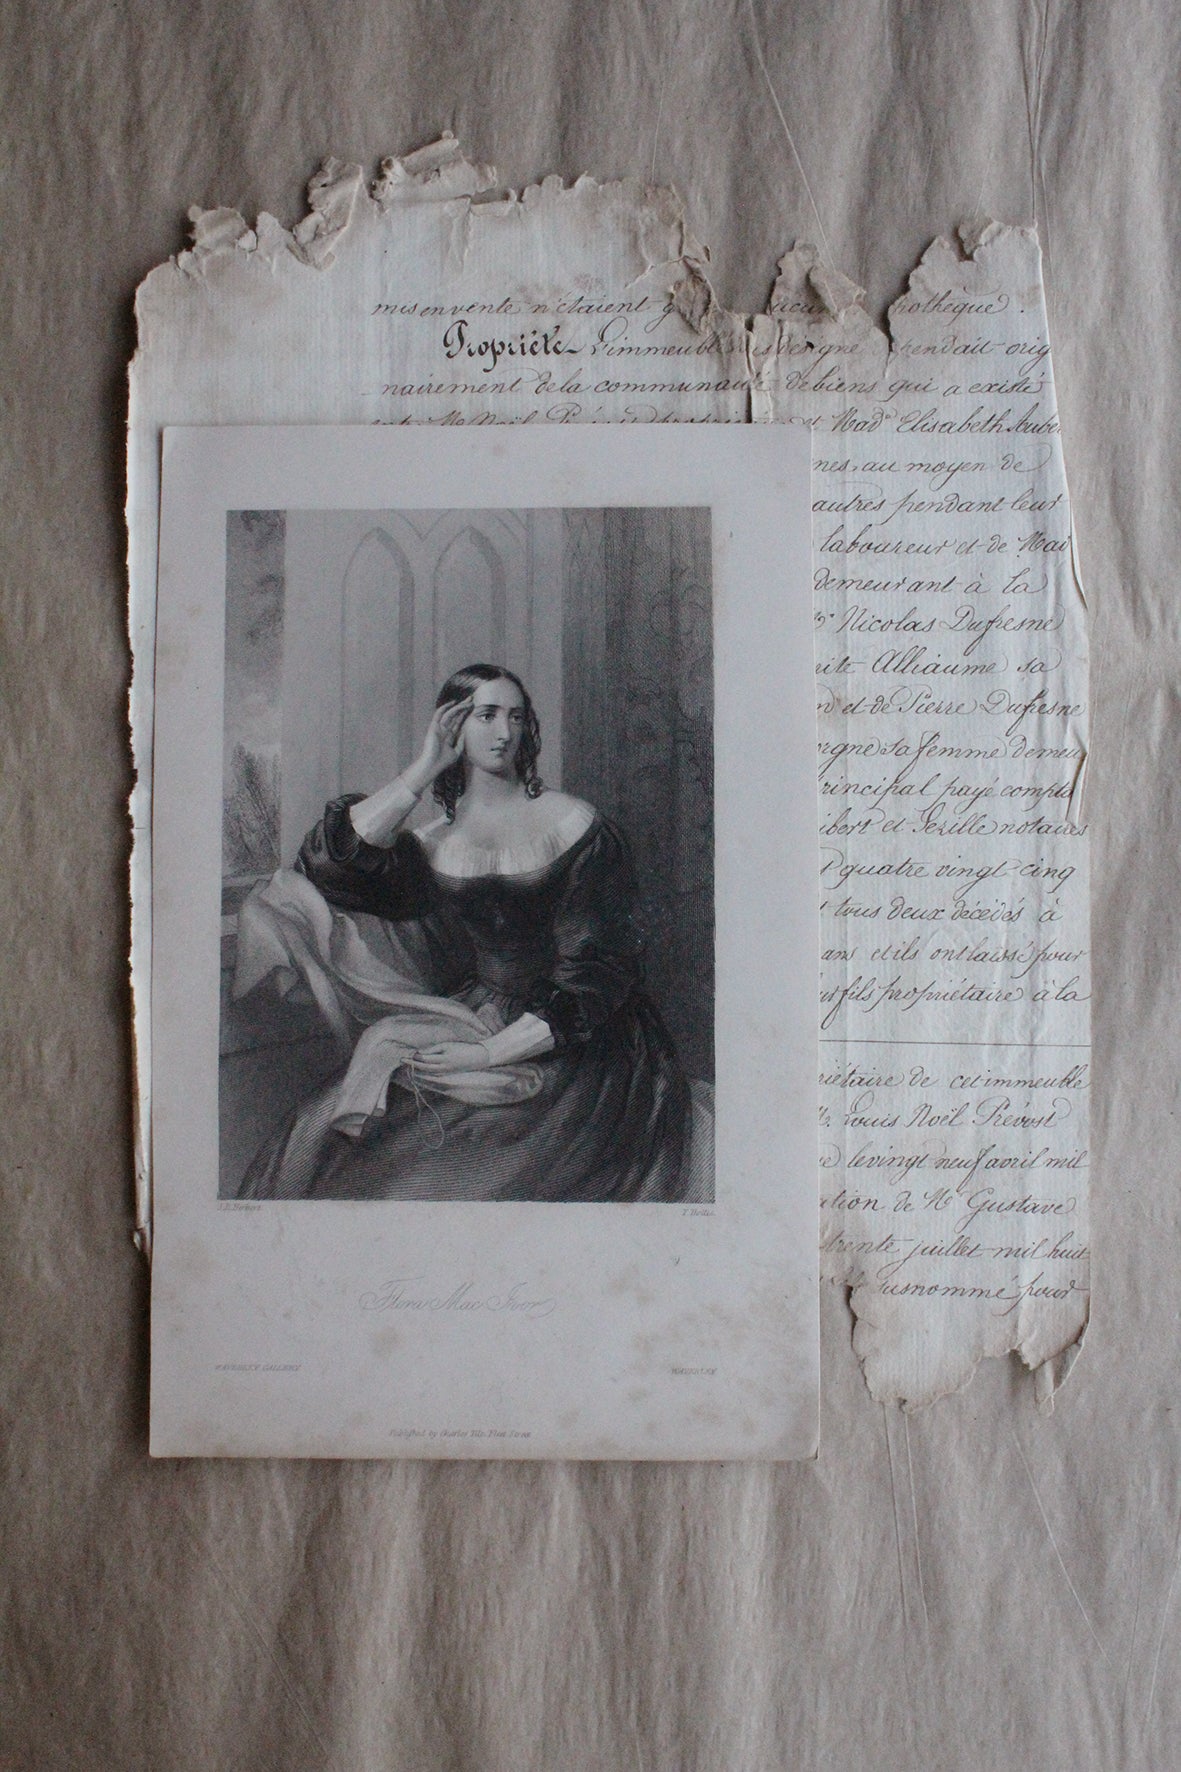 misenvente n'étaient
Propriété L'immeuble désigné dépendait orig
nairement dela communauté debiens qui a existé
Mad. Elisabeth
nes, au moyen de
autres pendant leur
laboureur et de Mad
demeurant à la
Nicolas Dufresne
Alliaume sa
et de Pierre Dufresne
sa femme demeu
rincipal payé compta
et notaires
quatre vingt-cinq
tous deux décédés à
ans et ils ont laissé pour
fils propriétaire à la
riétaire de cet immeuble
Louis Noël Prévost
le vingt neuf avril mil
ation de Me Gustave
trente juillet mil huit
susnommé pour
J. R. Herbert.
T. Hollis.
Flora Mac Ivor
WAVERLEY GALLERY.
WAVERLEY
Published by Charles Tilt, Fleet Street.